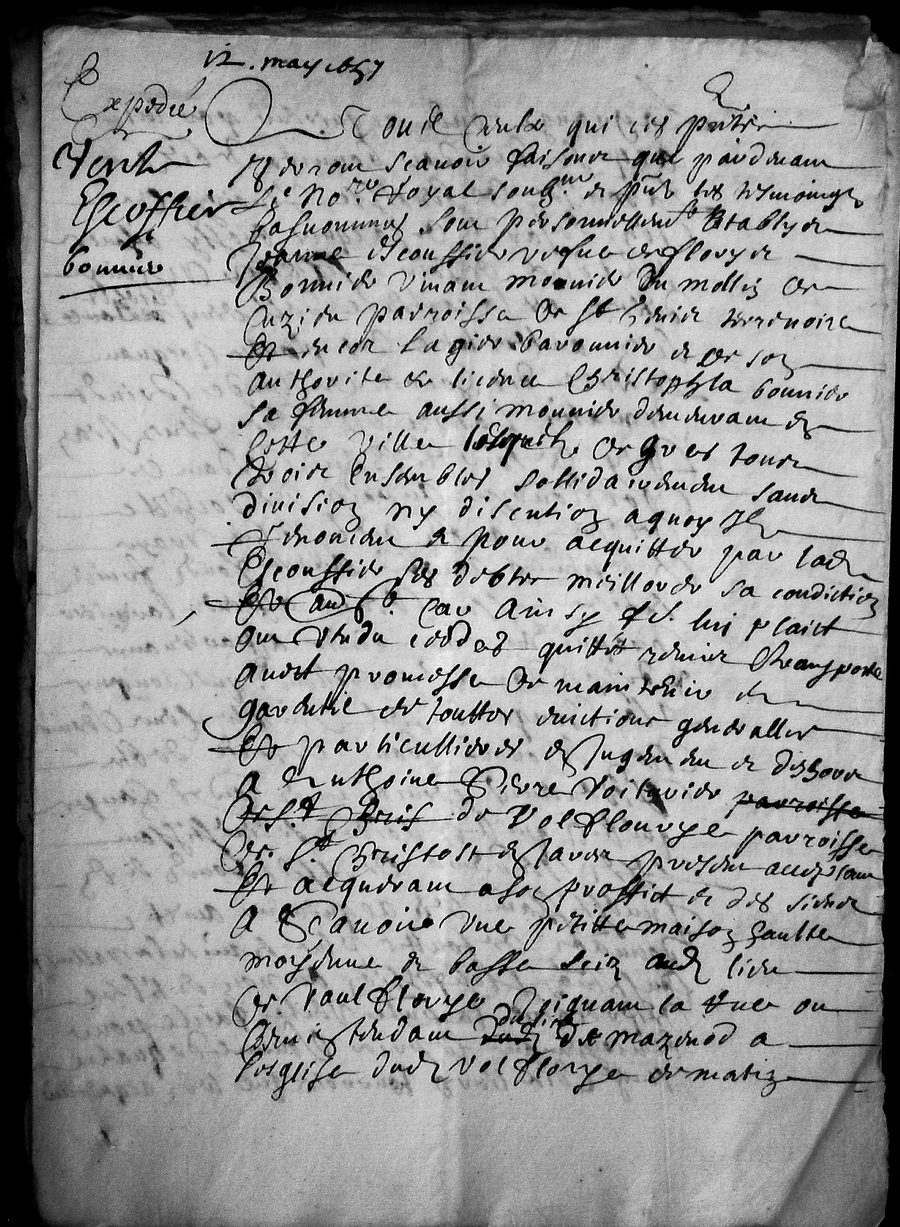 12. may 1657
Expedié
Vente
Escoffier
bonnier
A Tous ceulx qui ces pntes
verront scavoir faisons que pardevant
le No.re Royal soubz.né & pnts les tesmoingz
basnommes sont personnellemt establys
Jeanne Escoffier vefve de fleury
Bonnier vivant mounier du mollin de
paroisse de st terrenoire
Et encor bavonnier & de son
authorite & licence Christophla bonnier
sa femme aussi mounier demeurant en
cette ville lesquels de gres tous
droict ensembles sollidairement sans
division ny discution a quoy ilz
renoncent & pour acquitter par lad
Escoffier ses debtes meilleurer sa condiction
Et aud. car ainsy leur plaict
ont vendu ceddes quitté remis & transporté
avect promesse de maintenir &
garentie de touttes evictions generalles
Et particullieres en jugement & dehors
a Anthoine Pierre voiturier paroisse
de St de Valfleurye paroisse
de St. Christost en Javes present acceptant
Et acquerant a son proffict & des siens
A Scavoir une petitte maison haulte
moyenne & basse seiz aud lieu
de Vaulfleurye joignant la rue ou
chemin tendant dud de mazenod a
lesglise dud Valfleurye de matin